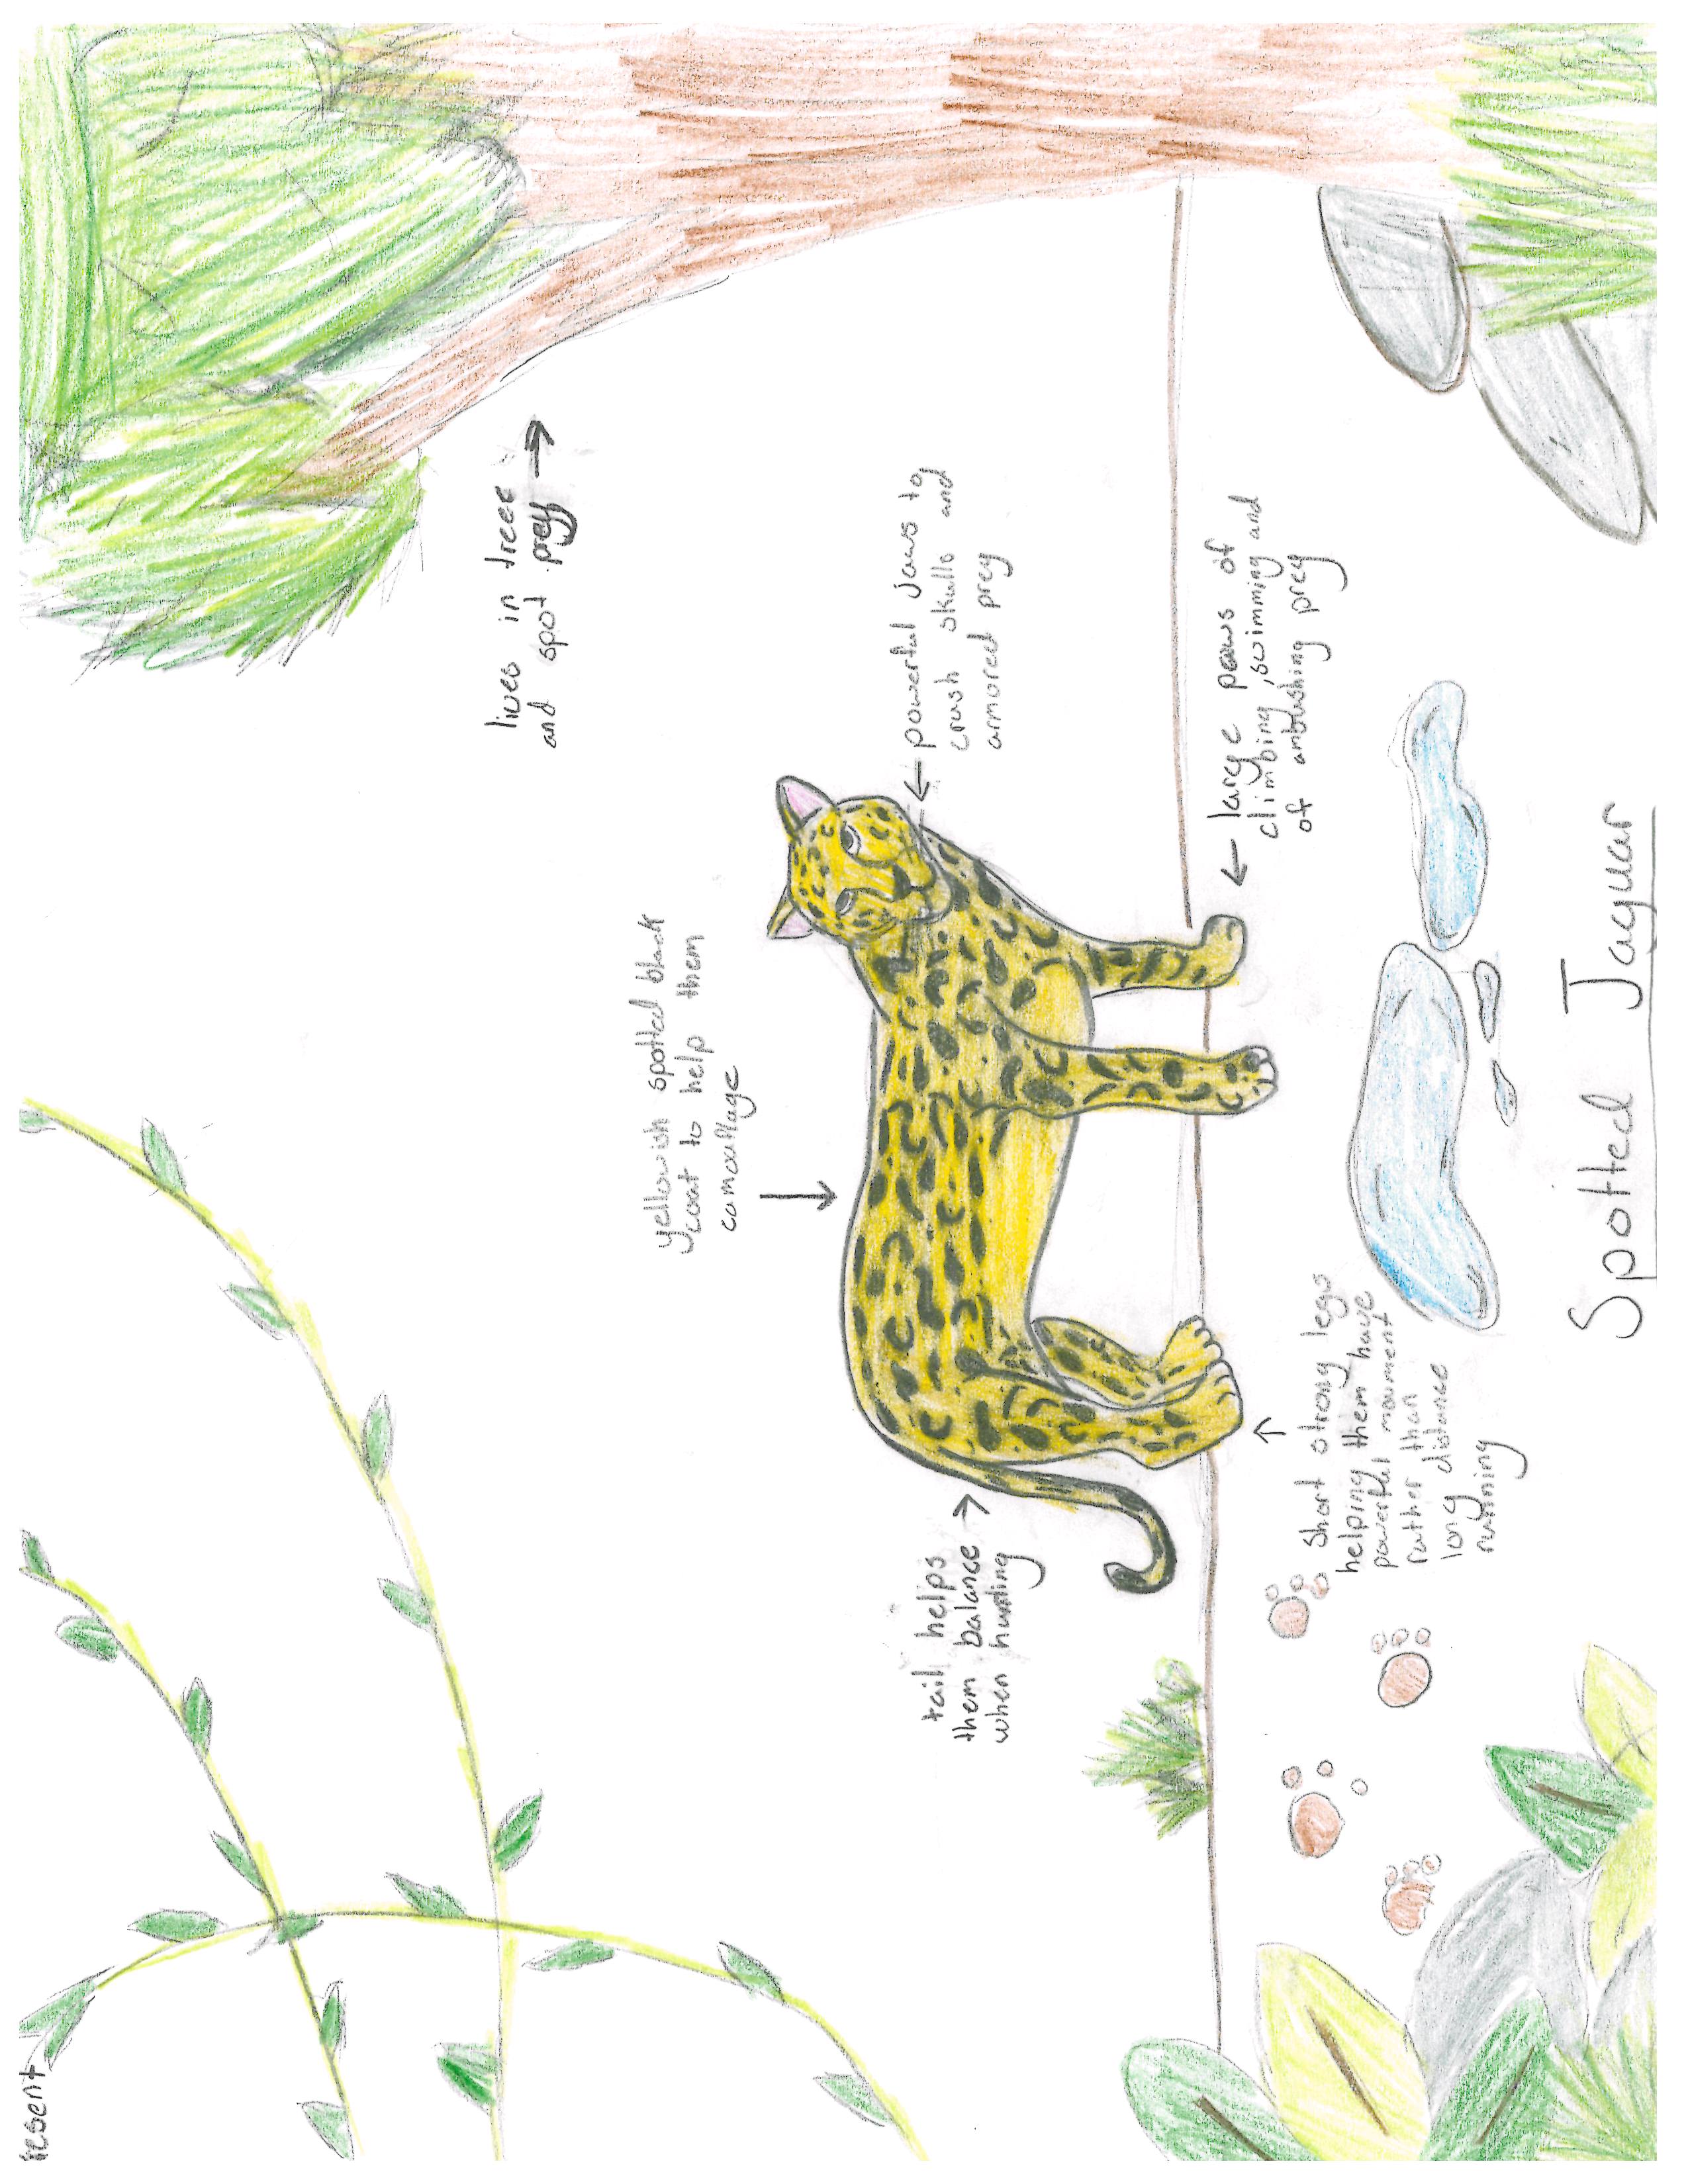 resent
lives in trees
and spot prey
yellowish spotted black
coat to help them
camouflage
powerful jaws to
crush skulls and
armored prey
tail helps
them balance
when hunting
large paws of
climbing, swimming and
of ambushing prey
Short strong legs
helping them have
powerful movment
rather than
long distance
running
Spotted Jaguar